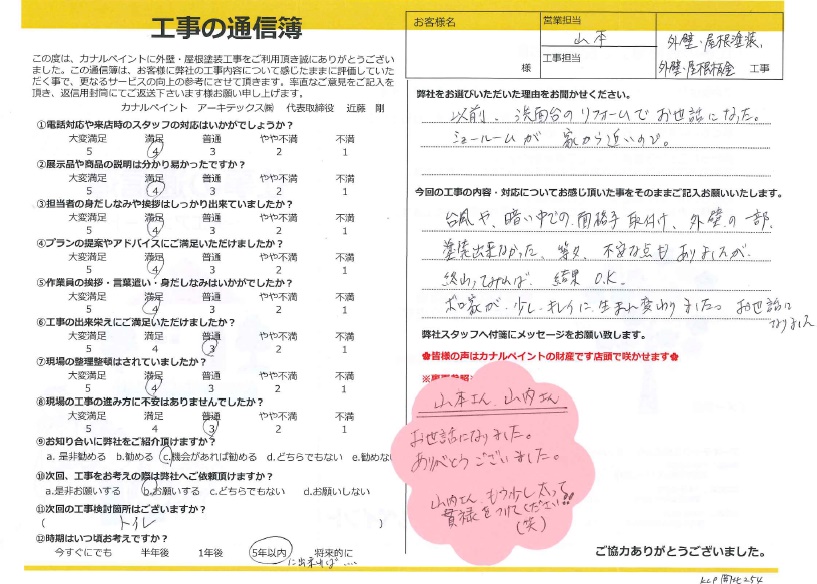 工事の通信簿
この度は、カナルペイントに外壁・屋根塗装工事をご利用頂き誠にありがとうござい
ました。この通信簿は、お客様に弊社の工事内容について感じたままに評価していた
だく事で、更なるサービスの向上の参考にさせて頂きます。率直なご意見をご記入を
頂き、返信用封筒にてご返送下さいます様お願い申し上げます。
カナルペイント アーキテックス㈱ 代表取締役 近藤 剛
①電話対応や来店時のスタッフの対応はいかがでしょうか？
大変満足 満足 普通 やや不満 不満
5 4 3 2 1
②展示品や商品の説明は分かり易かったですか？
大変満足 満足 普通 やや不満 不満
5 4 3 2 1
③担当者の身だしなみや挨拶はしっかり出来ていましたか？
大変満足 満足 普通 やや不満 不満
5 4 3 2 1
④プランの提案やアドバイスにご満足いただけましたか？
大変満足 満足 普通 やや不満 不満
5 4 3 2 1
⑤作業員の挨拶・言葉遣い・身だしなみはいかがでしたか？
大変満足 満足 普通 やや不満 不満
5 4 3 2 1
⑥工事の出来栄えにご満足いただけましたか？
大変満足 満足 普通 やや不満 不満
5 4 3 2 1
⑦現場の整理整頓はされていましたか？
大変満足 満足 普通 やや不満 不満
5 4 3 2 1
⑧現場の工事の進み方に不安はありませんでしたか？
大変満足 満足 普通 やや不満 不満
5 4 3 2 1
⑨お知り合いに弊社をご紹介頂けますか？
a. 是非勧める b. 勧める c.機会があれば勧める d.どちらでもない e.勧めない
⑩次回、工事をお考えの際は弊社へご依頼頂けますか？
a.是非お願いする b.お願いする c.どちらでもない d.お願いしない
⑪次回の工事検討箇所はございますか？
( トイレ )
⑫時期はいつ頃お考えですか？
今すぐにでも 半年後 1年後 5年以内 将来的に
に出来れば....
お客様名
様
営業担当
山本
工事担当
外壁・屋根塗装、
外壁・屋根板金 工事
弊社をお選びいただいた理由をお聞かせください。
以前、洗面台のリフォームでお世話になった。
ショールームが 家から近いので。
今回の工事の内容・対応についてお感じ頂いた事をそのままご記入お願いいたします。
台風や、暗い中での面格子取付け、外壁の一部、
塗装出来なかった、等々、不安な点もありましたが
終わってみれば 結果 O.K.
ボロ家が少しキレイに生まれ変わりました。お世話に
なりました
弊社スタッフへ付箋にメッセージをお願い致します。
✿皆様の声はカナルペイントの財産です店頭で咲かせます✿
山本さん、山内さん
お世話になりました。
ありがとうございました。
山内さん もう少し太って
貫禄をつけてください!!
(笑)
ご協力ありがとうございました。